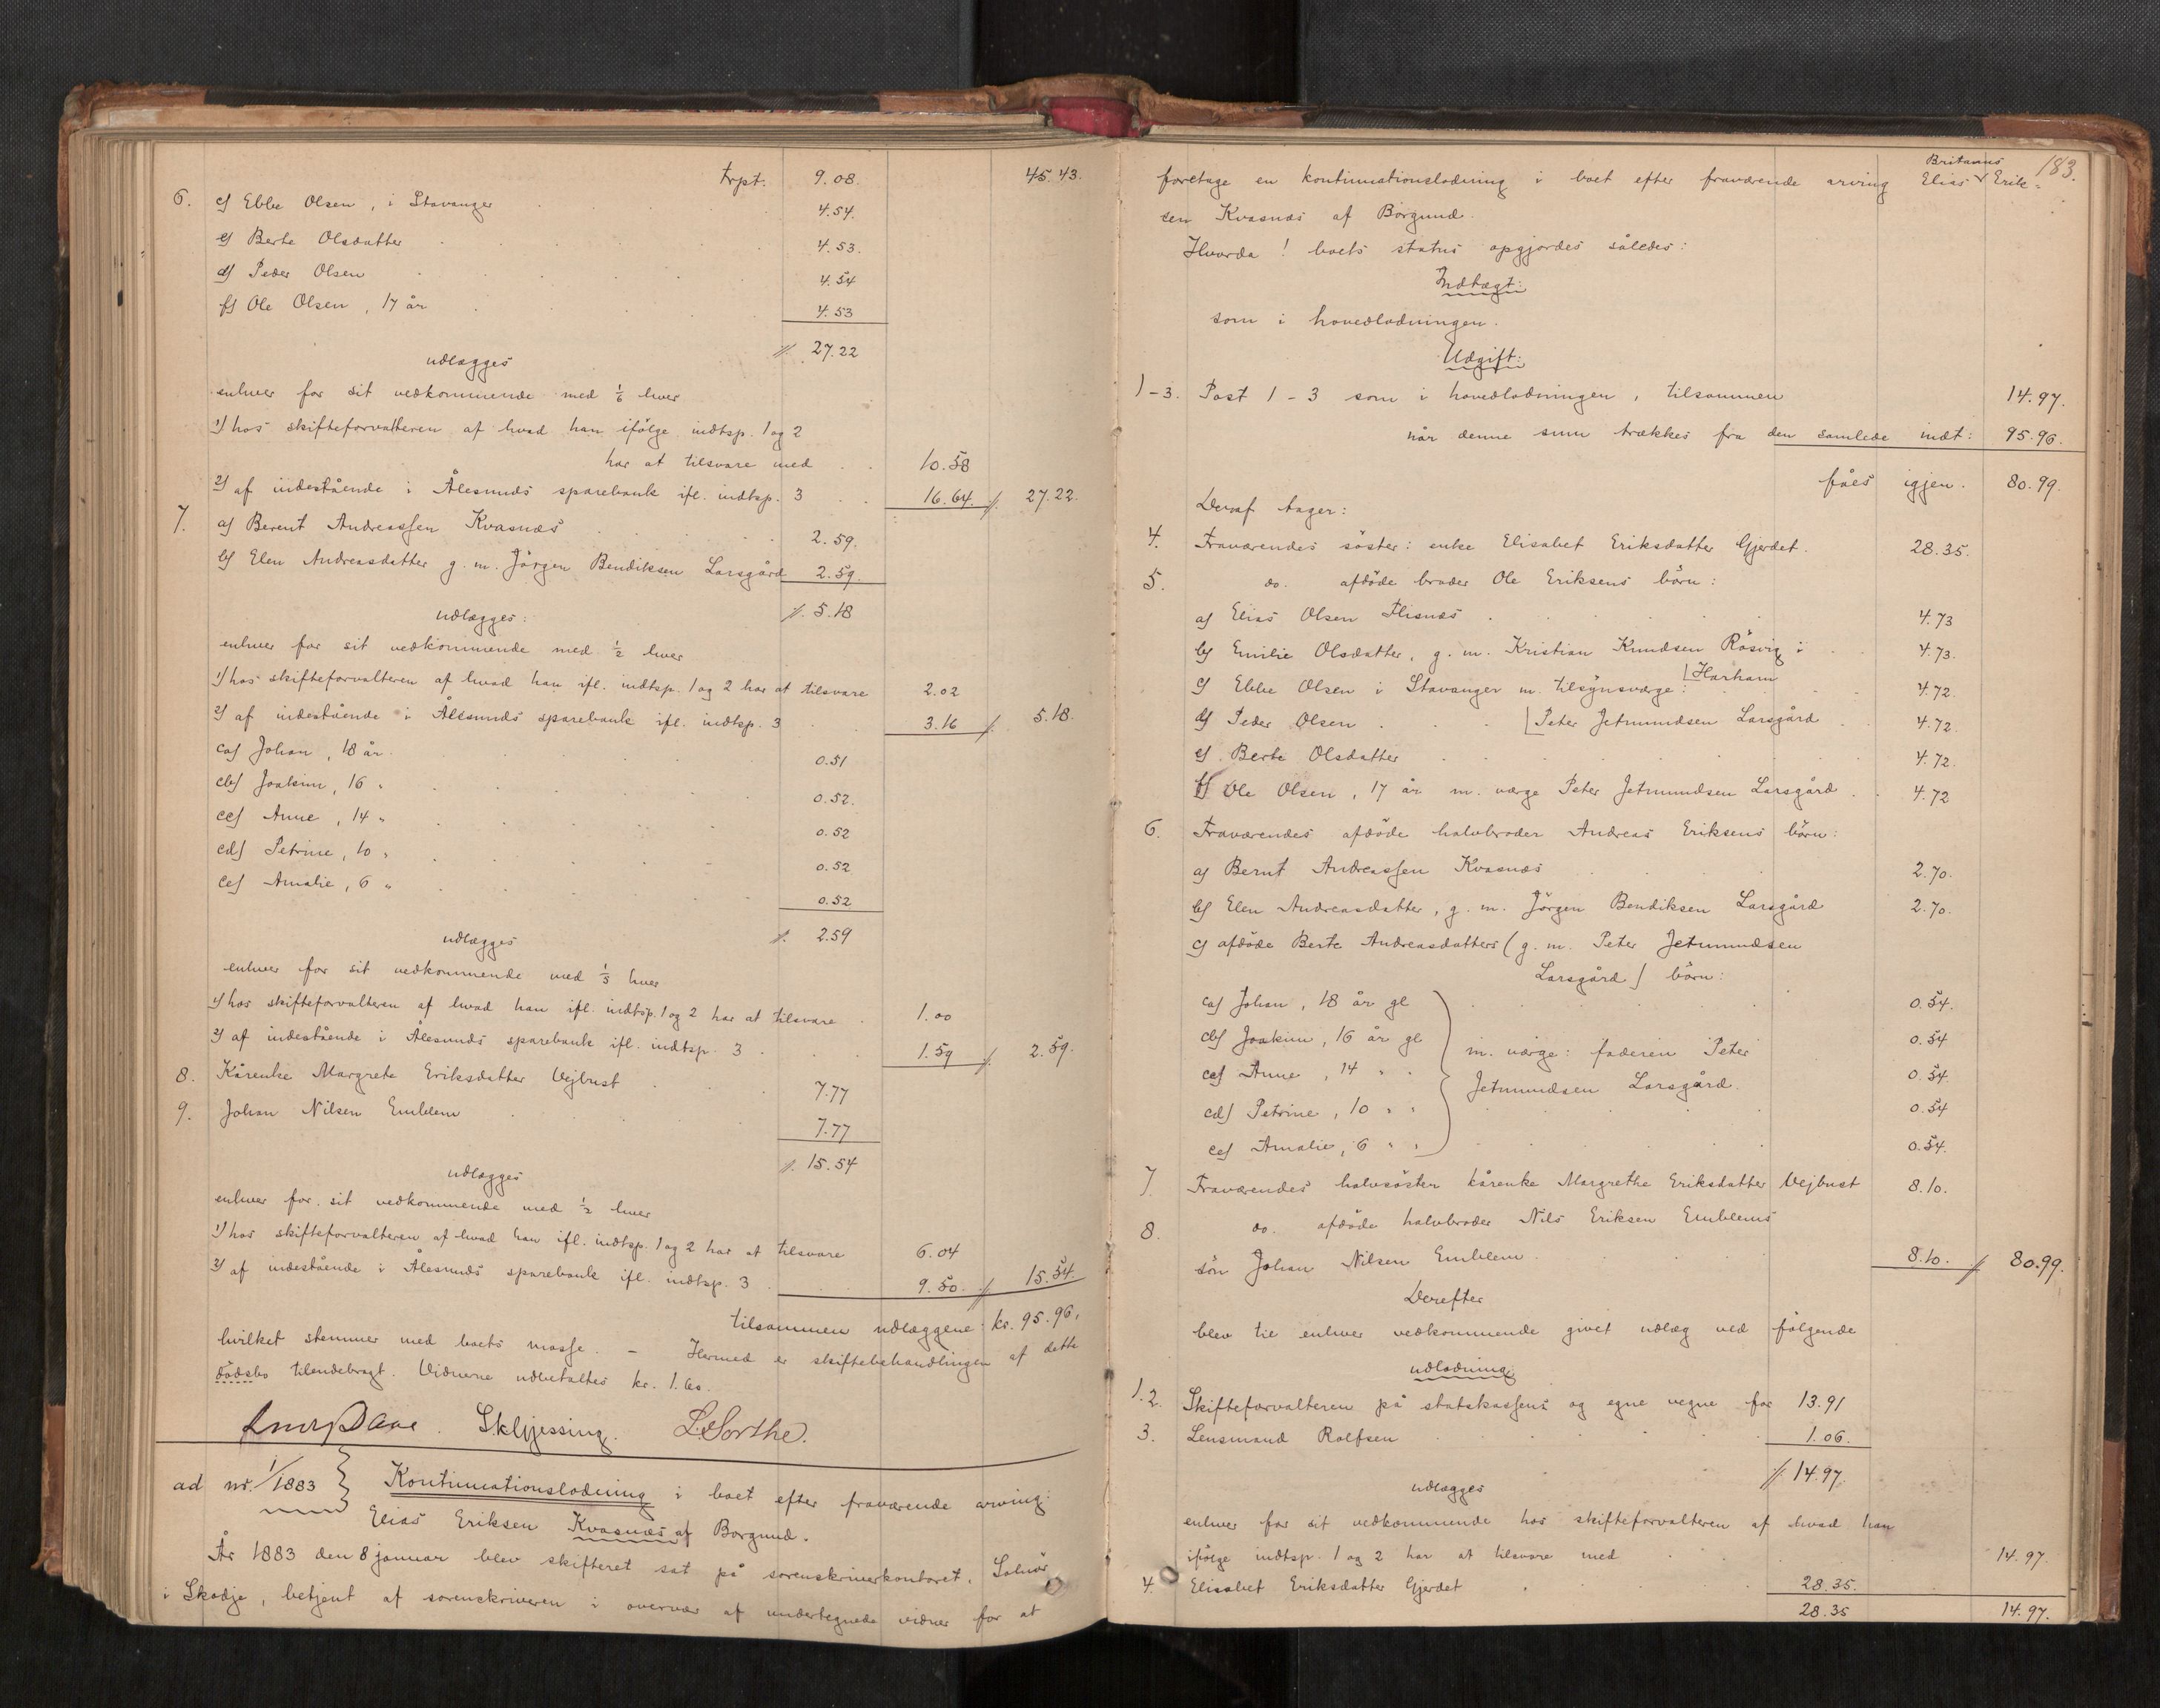 trpt. 9.08. 45.43.
6. c) Ebbe Olsen, i Stavanger 4.54.
e) Berte Olsdatter 4.53.
d) Peder Olsen 4.54
f) Ole Olsen, 17 år 4.53
//. 27.22
udlægges
enhver for sit vedkommende med 1/6 hver
1) hos skifteforvalteren af hvad han ifölge indtsp. 1 og 2
har at tilsvare med 10.58
2) af indestående i Ålesunds sparebank ifl. indtsp. 3 16.64. //. 27.22.
7. a) Berent Andreassen Kvasnæs 2.59.
b) Elen Andreasdatter g. m. Jörgen Bendiksen Larsgård 2.59.
//. 5.18
udlægges:
enhver for sit vedkommende med 1/2 hver
1) hos skifteforvalteren af hvad han ifl. indtsp. 1 og 2 har at tilsvare 2.02
2) af indestående i Ålesunds sparebank ifl. indtsp. 3 3.16 //. 5.18.
ca) Johan, 18 år 0.51
cb) Joakim, 16 " 0.52.
cc) Anne, 14 " 0.52
cd) Petrine, 10 " 0.52
ce) Amalie, 6 " 0.52
//. 2.59
udlægges
enhver for sit vedkommende med 1/5 hver
1) hos skifteforvalteren af hvad han ifl. indtsp. 1 og 2 har at tilsvare 1.00
2) af indestående i Ålesunds sparebank ifl. indtsp. 3 1.59 //. 2.59.
8. Kårenke Margrete Eriksdatter Vejbust 7.77
9. Johan Nilsen Emblem 7.77
//. 15.54
udlægges
enhver for sit vedkommende med 1/2 hver
1) hos skifteforvalteren af hvad han ifl. indtsp. 1 og 2 har at tilsvare 6.04
2) af indestående i Ålesunds sparebank ifl. indtsp. 3 9.50. //. 15.54.
tilsammen udlæggene: kr. 95.96,
hvilket stemmer med boets masse. – Hermed er skiftebehandlingen af dette
dödsbo tilendebragt. Vidnerne udbetaltes kr. 1.60.
L. Sorthe.
ad nr. 1/1883 } Kontinuationslodning i boet efter fraværende arving:
Elias Eriksen Kvasnæs af Borgund.
År 1883 den 8 januar blev skifteret sat på sorenskriverkontoret, Solnör
i Skodje, betjent af sorenskriveren i overvær af undertegnede vidner for at
183.
Britanus
foretage en kontinuationslodning i boet efter fraværende arving Elias v Erik-
sen Kvasnæs af Borgund.
Hvorda! boets status opgjordes således:
Indtægt:
som i hovedlodningen.
Udgift:
1-3. Post 1 - 3 som i hovedlodningen, tilsammen 14.97.
når denne sum trækkes fra den samlede indt: 95.96.
fåes igjen. 80.99.
Deraf tager:
4. Fraværendes söster: enke Elisabet Eriksdatter Gjerdet. 28.35.
5. do. afdöde broder Ole Eriksens börn:
a) Elias Olsen Flisnæs 4.73
b) Emilie Olsdatter, g. m. Kristian Knudsen Rösvig i 4.73.
[Harham
c) Ebbe Olsen i Stavanger m. tilsynsværge: 4.72.
d) Peder Olsen [Peter Jetmundsen Larsgård 4.72.
e) Berte Olsdatter 4.72.
f) Ole Olsen, 17 år m. værge Peter Jetmundsen Larsgård 4.72
6. Fraværendes afdöde halvbroder Andreas Eriksens börn:
a) Bernt Andreassen Kvasnæs 2.70.
b) Elen Andreasdatter, g. m. Jörgen Bendiksen Larsgård 2.70.
c) afdöde Berte Andreasdatters (g. m. Peter Jetmundsen
Larsgård) börn:
ca) Johan, 18 år gl 0.54.
cb) Joakim, 16 år gl 0.54
m. værge: faderen Peter
cc) Anne, 14 " " 0.54.
Jetmundsen Larsgård.
cd) Petrine, 10 " " 0.54
ce) Amalie, 6 " " 0.54.
7. Fraværendes halvsöster kårenke Margrethe Eriksdatter Vejbust 8.10.
8. do. afdöde halvbroder Nils Eriksen Emblems
sön Johan Nilsen Emblem 8.10. //. 80.99.
Derefter
blev til enhver vedkommende givet udlæg ved följende
udlodning:
1.2. Skifteforvalteren på statskassens og egne vegne for 13.91
3. Lensmand Rolfsen 1.06.
//. 14.97.
udlægges
enhver for sit vedkommende hos skifteforvalteren af hvad han
ifölge indtsp. 1 og 2 har at tilsvare med 14.97.
4. Elisabet Eriksdatter Gjerdet 28.35.
28.35 14.97.